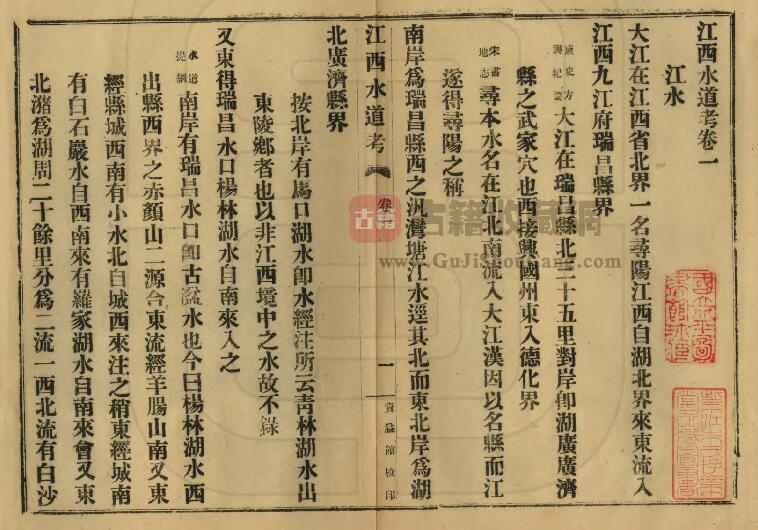 江西水道考卷一
江水
大江在江西省北界一名尋陽江西自湖北界來東流入
江西九江府瑞昌縣界
讀史方輿紀要大江在瑞昌縣北三十五里對岸卽湖廣廣濟
縣之武家穴也西接興國州東入德化界
宋書地志尋本水名在江北南流入大江漢因以名縣而江
遂得尋陽之稱
南岸爲瑞昌縣西之汎灣塘江水逕其北而東北岸爲湖
江西水道考
卷一
一
資益館校印
北廣濟縣界
按北岸有馬口湖水卽水經注所云靑林湖水出
東陵鄕者也以非江西境中之水故不錄
又東得瑞昌水口楊林湖水自南來入之
水道提綱南岸有瑞昌水口卽古湓水也今曰楊林湖水西
出縣西界之赤顏山二源合東流經羊腸山南又東
經縣城西南有小水北自城西來注之稍東經城南
有白石巖水自西南來有羅家湖水自南來會又東
北瀦爲湖周二十餘里分爲二流一西北流有白沙
古籍
古籍收藏網
www.GuJiShouCang.com